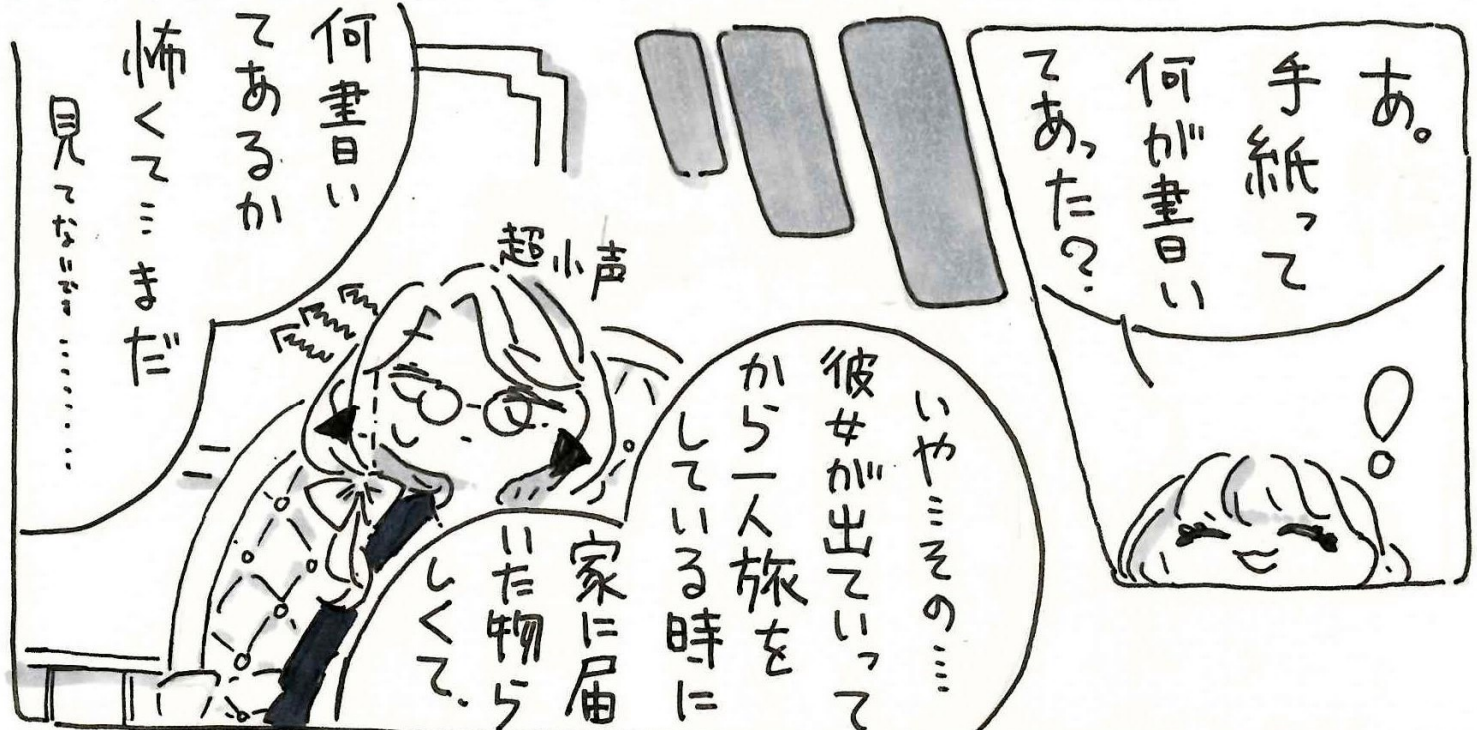 あ。
手紙って
何が書い
てあった?
いや…その…
彼女が出ていって
から一人旅を
している時に
家に届
いた物ら
しくて、
超小声
何書い
てあるか
怖くて…まだ
見てないです………